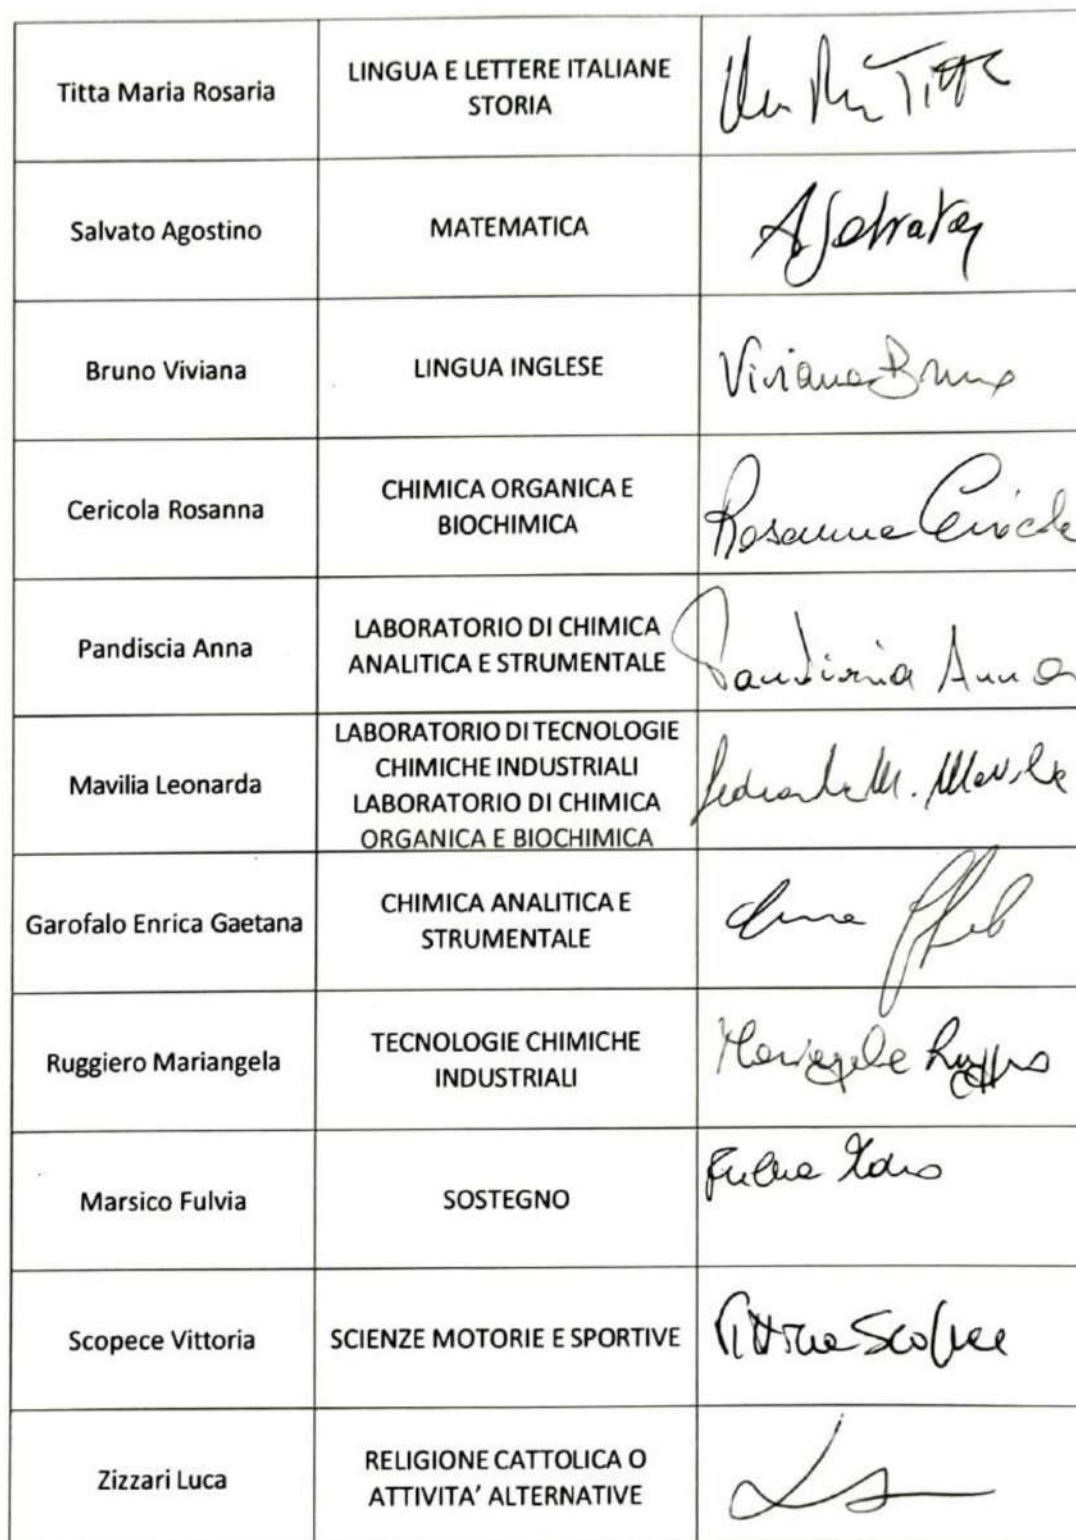 Titta Maria Rosaria
LINGUA E LETTERE ITALIANE
STORIA
Titta
Salvato Agostino
MATEMATICA
Bruno Viviana
LINGUA INGLESE
Viviana Bruno
Cericola Rosanna
CHIMICA ORGANICA E
BIOCHIMICA
Rosanna Cericola
Pandiscia Anna
LABORATORIO DI CHIMICA
ANALITICA E STRUMENTALE
Pandiscia Anna
Mavilia Leonarda
LABORATORIO DI TECNOLOGIE
CHIMICHE INDUSTRIALI
LABORATORIO DI CHIMICA
ORGANICA E BIOCHIMICA
Leonarda M. Mavilia
Garofalo Enrica Gaetana
CHIMICA ANALITICA E
STRUMENTALE
Ruggiero Mariangela
TECNOLOGIE CHIMICHE
INDUSTRIALI
Mariangela Ruggiero
Marsico Fulvia
SOSTEGNO
Fulvia
Scopece Vittoria
SCIENZE MOTORIE E SPORTIVE
Vittoria Scopece
Zizzari Luca
RELIGIONE CATTOLICA O
ATTIVITA' ALTERNATIVE